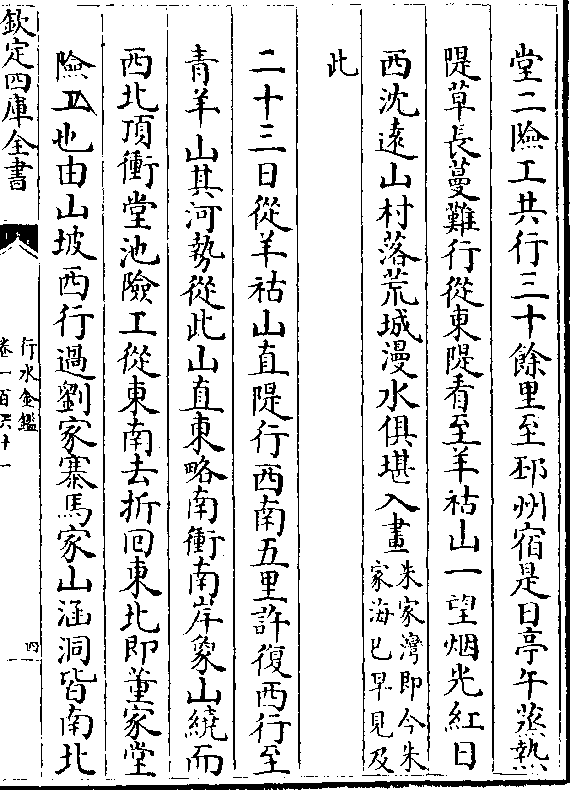 堂二險工共行三十餘里至邳州宿是日亭午蒸熱
隄草長蔓難行從東隄看至羊祜山一望烟光紅日
西沈遠山村落荒城漫水俱堪入畫朱家灣即今朱
家海已早見及
此
二十三日從羊祜山直隄行西南五里許復西行至
青羊山其河勢從此山直東略南衝南岸象山繞而
西北頂衝堂池險工從東南去折回東北即董家堂
險工也由山坡西行過劉家寨馬家山涵洞皆南北
欽定四庫全書
行水金鑑
卷一百六十一
四